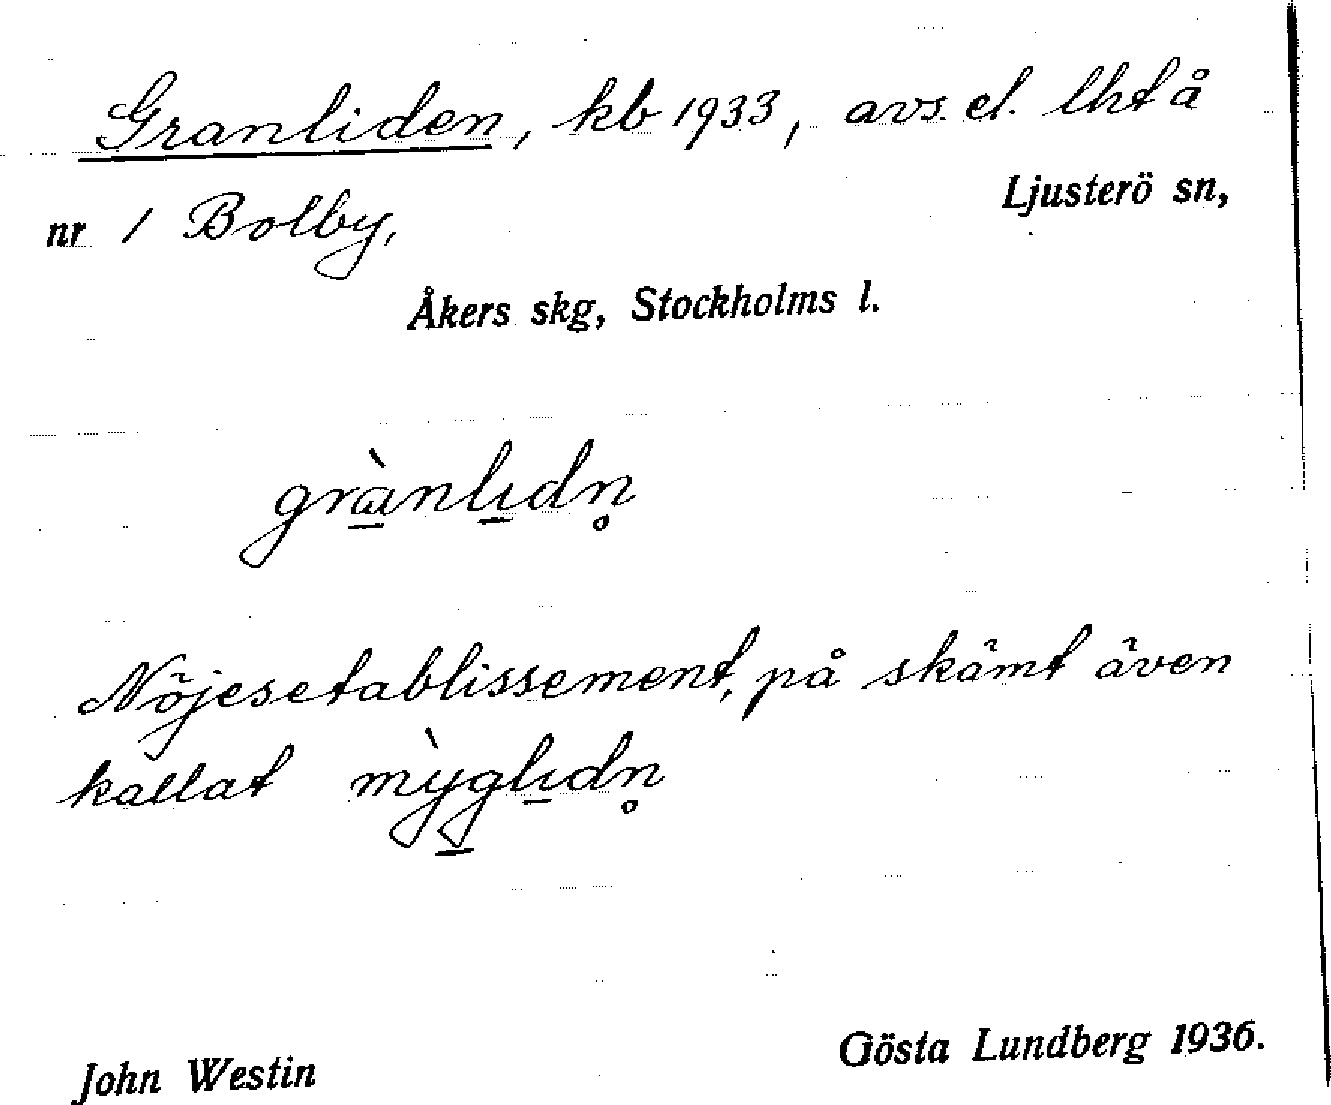 Granliden, kb 1933, avs. el. lht å
nr 1 Bolby, Ljusterö sn,
Åkers skg, Stockholms l.
grànlıdn̥
Nöjesetablissement, på skämt även
kallat mỳglıdn̥
John Westin Gösta Lundberg 1936.